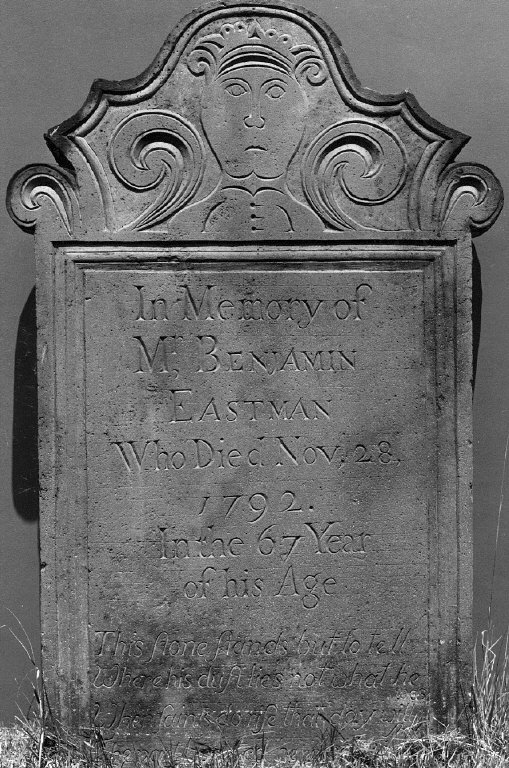 In Memory of
Mr. BENJAMIN
EASTMAN
Who Died Nov. 28,
1792.
In the 67 Year
of his Age
This stone stands but to tell
Where his dust lies not what he
that day will